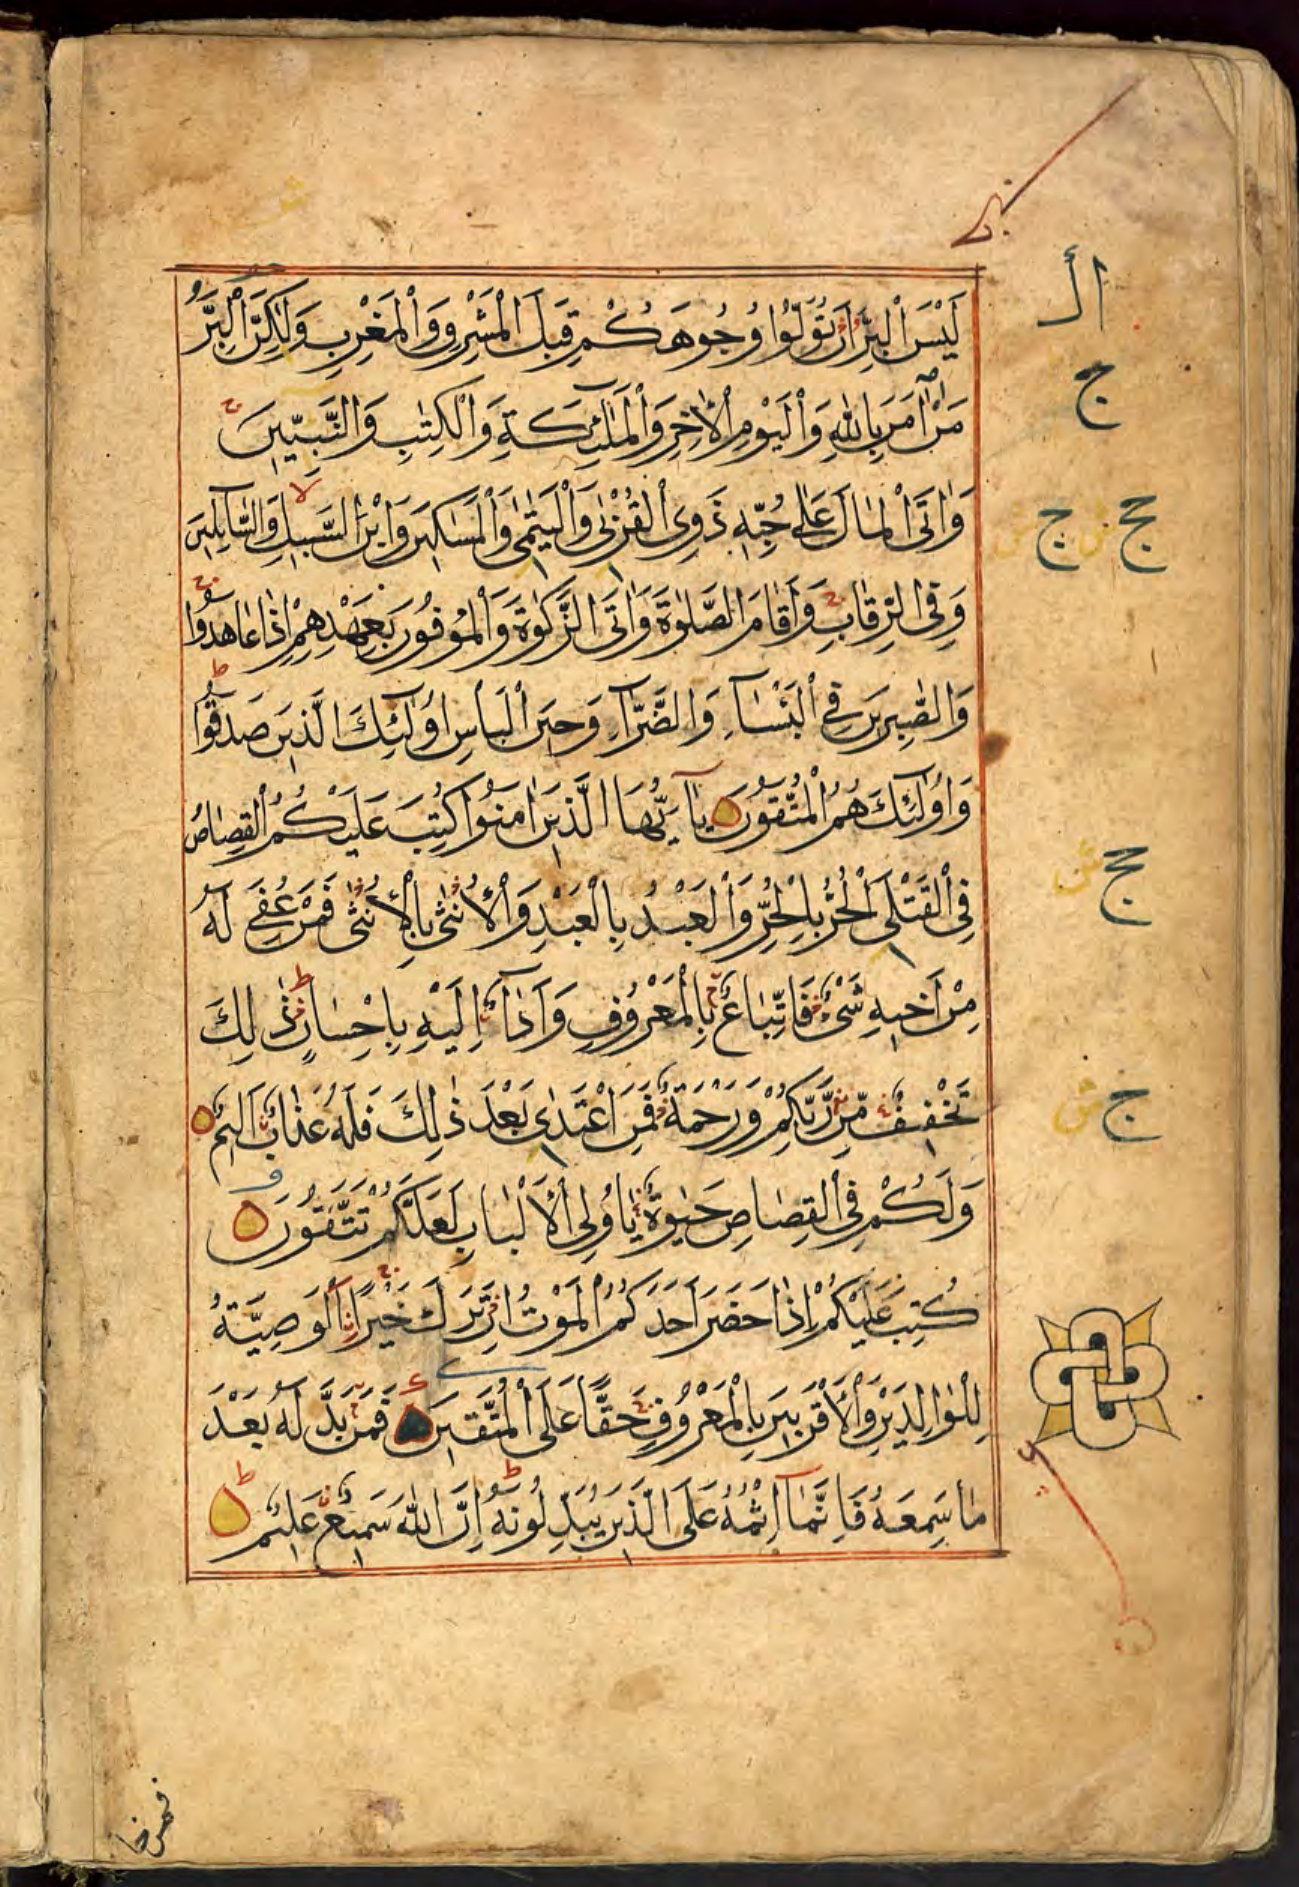 لَيْسَ الْبِرَّ اَنْ تُوَلُّوْا وُجُوهَكُمْ قِبَلَ الْمَشْرِقِ وَالْمَغْرِبِ وَلٰكِنَّ الْبِرَّ
مَنْ اٰمَنَ بِاللّٰهِ وَالْيَوْمِ الْاٰخِرِ وَالْمَلٰٓئِكَةِ وَالْكِتٰبِ وَالنَّبِيّٖنَ
وَاٰتَى الْمَالَ عَلٰى حُبِّهٖ ذَوِى الْقُرْبٰى وَالْيَتٰمٰى وَالْمَسٰاكٖينَ وَابْنَ السَّبٖيلِ وَالسَّآئِلٖينَ
وَفِى الرِّقٰابِ وَاَقَامَ الصَّلٰوةَ وَاٰتَى الزَّكٰوةَ وَالْمُوفُونَ بِعَهْدِهِمْ اِذٰا عٰاهَدُوْا
وَالصّٰبِرٖينَ فِى الْبَأْسَآءِ وَالضَّرَّآءِ وَحٖينَ الْبَأْسِ اُولٰٓئِكَ الَّذٖينَ صَدَقُوْا
وَاُولٰٓئِكَ هُمُ الْمُتَّقُونَ يٰٓاَيُّهَا الَّذٖينَ اٰمَنُوْا كُتِبَ عَلَيْكُمُ الْقِصٰاصُ
فِى الْقَتْلٰى اَلْحُرُّ بِالْحُرِّ وَالْعَبْدُ بِالْعَبْدِ وَالْاُنْثٰى بِالْاُنْثٰى فَمَنْ عُفِىَ لَهُ
مِنْ اَخٖيهِ شَىْءٌ فَاتِّبٰاعٌ بِالْمَعْرُوفِ وَاَدٰآءٌ اِلَيْهِ بِاِحْسٰانٍ ذٰلِكَ
تَخْفٖيفٌ مِنْ رَبِّكُمْ وَرَحْمَةٌ فَمَنِ اعْتَدٰى بَعْدَ ذٰلِكَ فَلَهُ عَذٰابٌ اَلٖيمٌ
وَلَكُمْ فِى الْقِصٰاصِ حَيٰوةٌ يٰٓاُولِى الْاَلْبٰابِ لَعَلَّكُمْ تَتَّقُونَ
كُتِبَ عَلَيْكُمْ اِذٰا حَضَرَ اَحَدَكُمُ الْمَوْتُ اِنْ تَرَكَ خَيْرًا الْوَصِيَّةُ
لِلْوٰالِدَيْنِ وَالْاَقْرَبٖينَ بِالْمَعْرُوفِ حَقًّا عَلَى الْمُتَّقٖينَ فَمَنْ بَدَّلَهُ بَعْدَ
مٰا سَمِعَهُ فَاِنَّمٰٓا اِثْمُهُ عَلَى الَّذٖينَ يُبَدِّلُونَهُ اِنَّ اللّٰهَ سَمٖيعٌ عَلٖيمٌ
فمن خا